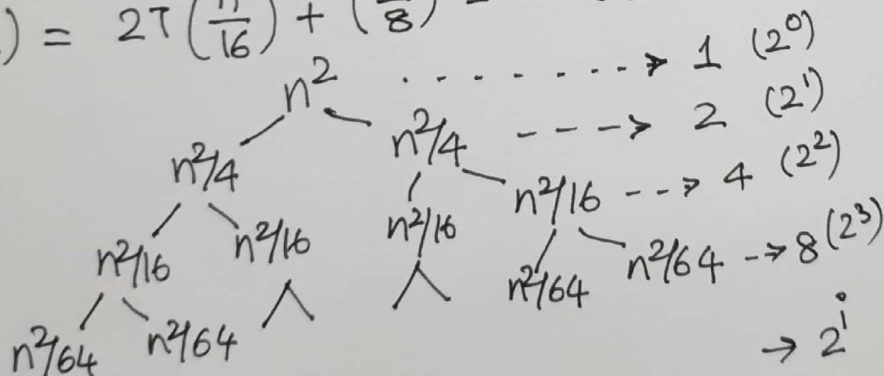 ) = 2T(n/16) + (/8)
n² → 1 (2⁰)
n²/4 n²/4 → 2 (2¹)
n²/16 n²/16 n²/16 n²/16 → 4 (2²)
n²/64 n²/64 n²/64 n²/64 → 8 (2³)
→ 2ⁱ